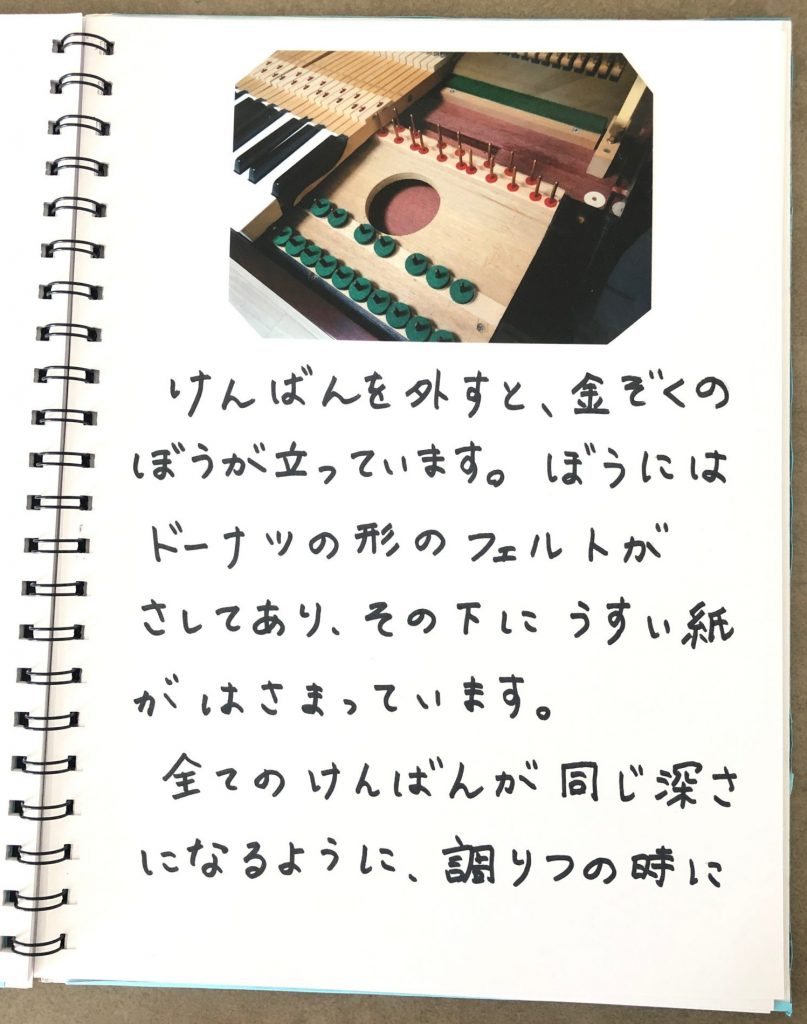 けんばんを外すと、金ぞくの
ぼうが立っています。ぼうには
ドーナツの形のフェルトが
さしてあり、その下にうすい紙
がはさまっています。
全てのけんばんが同じ深さ
になるように、調りつの時に